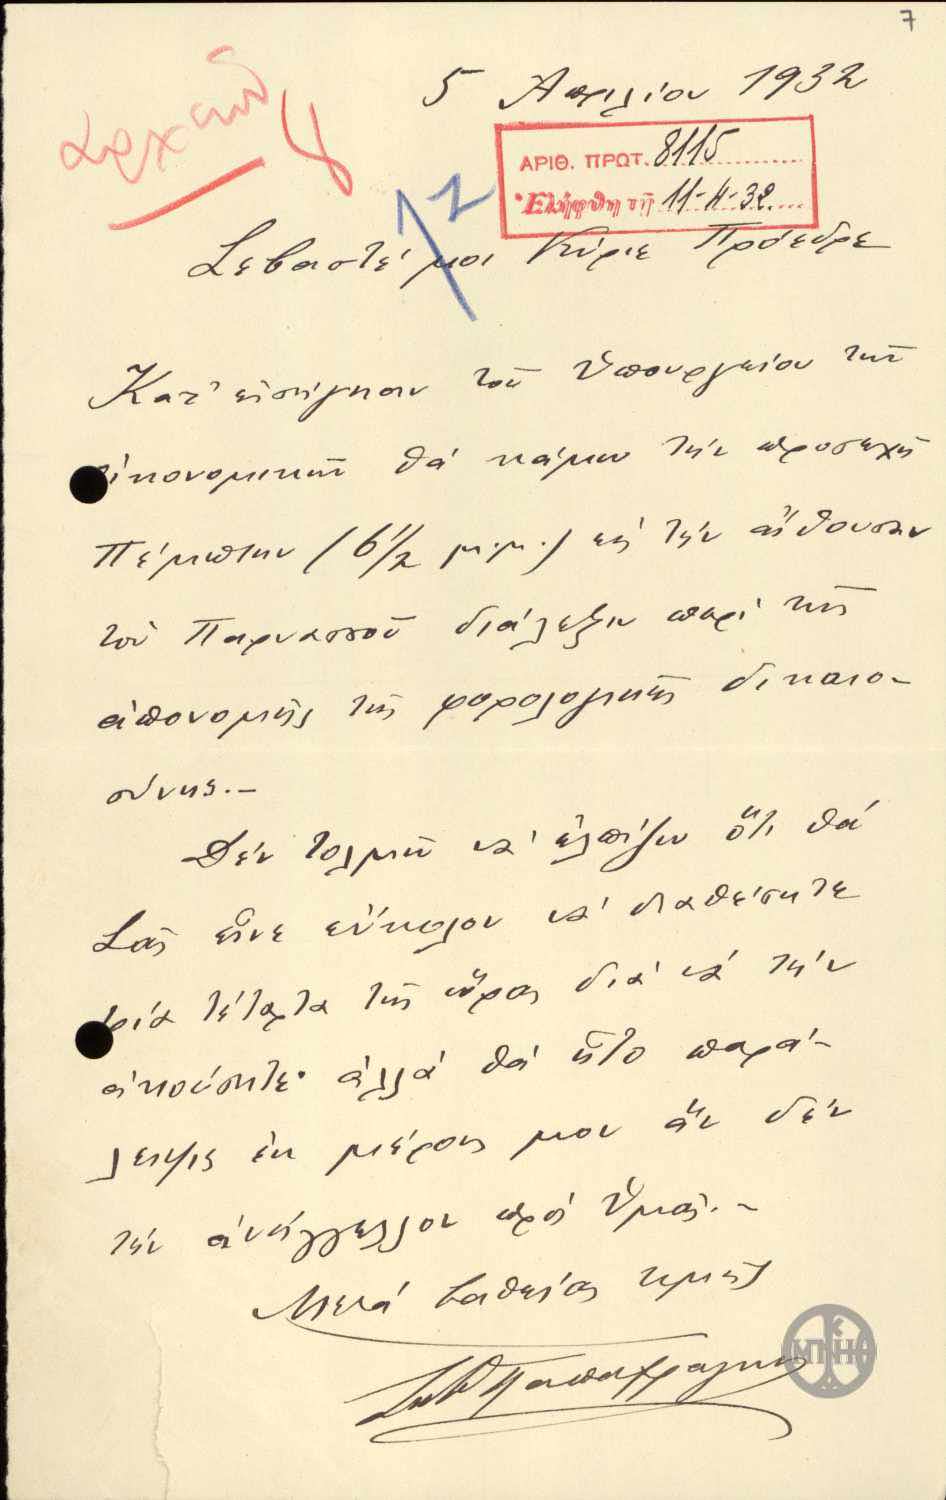 7
5 Ἀπριλίου 1932
ἀρχεῖον
ΑΡΙΘ. ΠΡΩΤ. 8115
Ἐλήφθη τῇ 11-4-32
Σεβαστέ μοι Κύριε Πρόεδρε
Κατ' εἰσήγησιν τοῦ Ὑπουργείου τῆς
οἰκονομικῆς θά κάμω τήν προσεχῆ
Πέμπτην (6 1/2 μ.μ.) εἰς τήν αἴθουσαν
τοῦ Παρνασσοῦ διάλεξιν περί τῆς
ἀπονομῆς τῆς φορολογικῆς δικαιο-
σύνης.-
Δέν τολμῶ νά ἐλπίζω ὅτι θά
Σᾶς εἶνε εὔκολον νά διαθέσητε
τρία τέταρτα τῆς ὥρας διά νά τήν
ἀκούσητε· ἀλλά θά ἦτο παρά-
λειψις ἐκ μέρους μου ἄν δέν
τήν ἀνήγγελλον πρός Ὑμᾶς.-
Μετά βαθείας τιμῆς
Παπαφράγκος